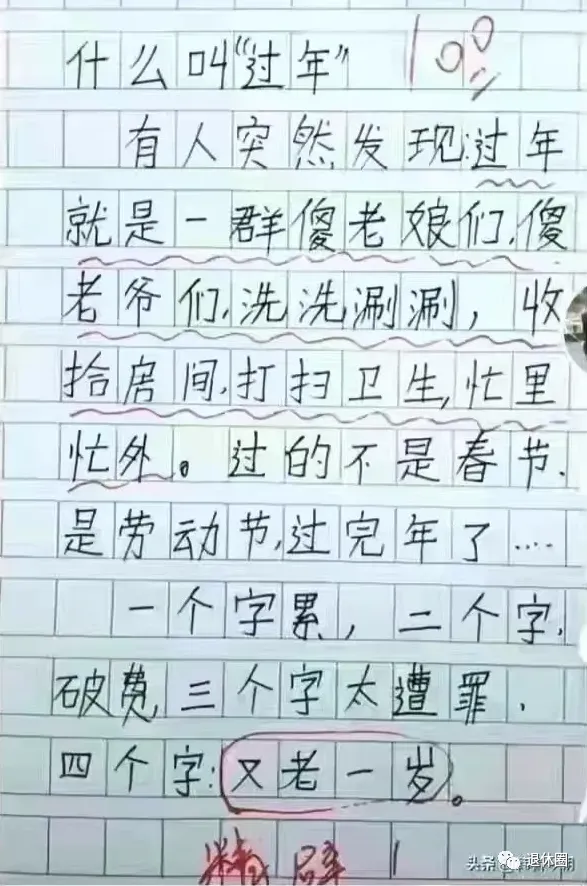 什么叫“过年” 100
有人突然发现:过年
就是一群傻老娘们,傻
老爷们,洗洗涮涮,收
拾房间,打扫卫生,忙里
忙外。过的不是春节.
是劳动节,过完年了....
一个字累,二个字,
破费三个字太遭罪.
四个字:又老一岁。
精辟!
头条
退休圈